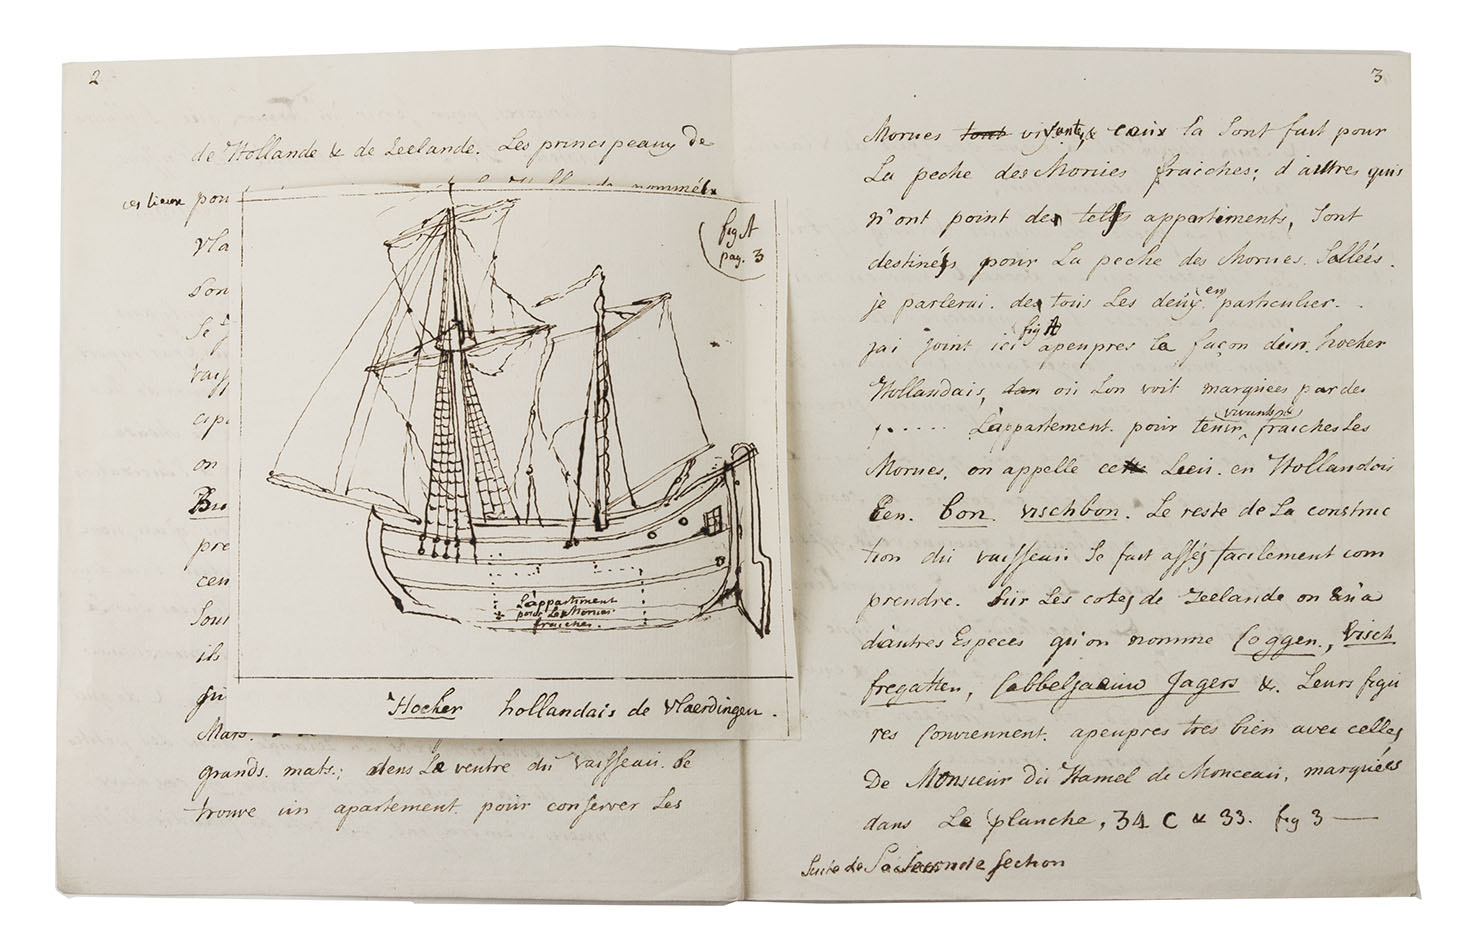 2
de Hollande & de Zeelande. Les principeaux de
ces lieux pou
nommées
Vla
Son
Se
Vaiss
espe
on
Bu
pre
cen
Sous
ils
qui
Mats.
grands. mats.; dens Le ventre du Vaisseau. Se
trouve un apartement pour conserver Les
fig A
pag. 3
L'appartiment
pour Les Morues
fraiches.
Hocker hollandais de Vlaerdingen.
3
Morues tout vivante, & ceux la Sont fait pour
La peche des Morues fraiches; d'autres quis
n'ont point des tells appartiments, Sont
destinées pour La peche des Morues Sallées.
je parlerai des tous Les deux en particulier.
jai joint ici fig A apeupres la façon d'eun hocker
Hollandais, dan où Lon voit marquées par des
,...... L'appartement pour tenir vivants fraiches Les
Morues, on appelle cette Lieu en Hollandois
Een bon vischbon. Le reste de La construc
tion du vaisseau Se fait assés facilement com
prendre. Sur Les cotes de Zeelande on en a
d'autres Especes qu'on nomme Coggen, visch
fregatten, Cabbeljaauw Jagers &. Leurs figu
res Conviennent apeupres tres bien avec celles
De Monsieur Du Hamel de Monceau, marquées
dans La planche, 34 C & 33. fig 3 —
Suite de La Seconde Section